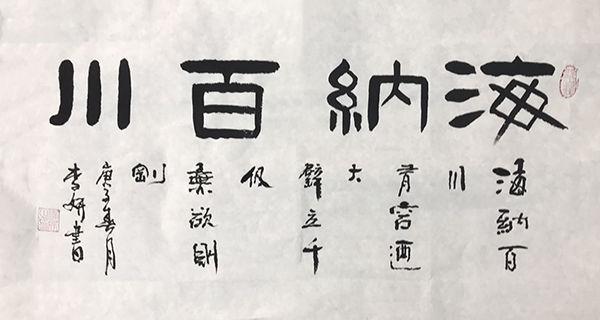 海納百川
海納百
川
有容迺
大
壁立千
仞
無欲則
剛
庚子春月
李妍書